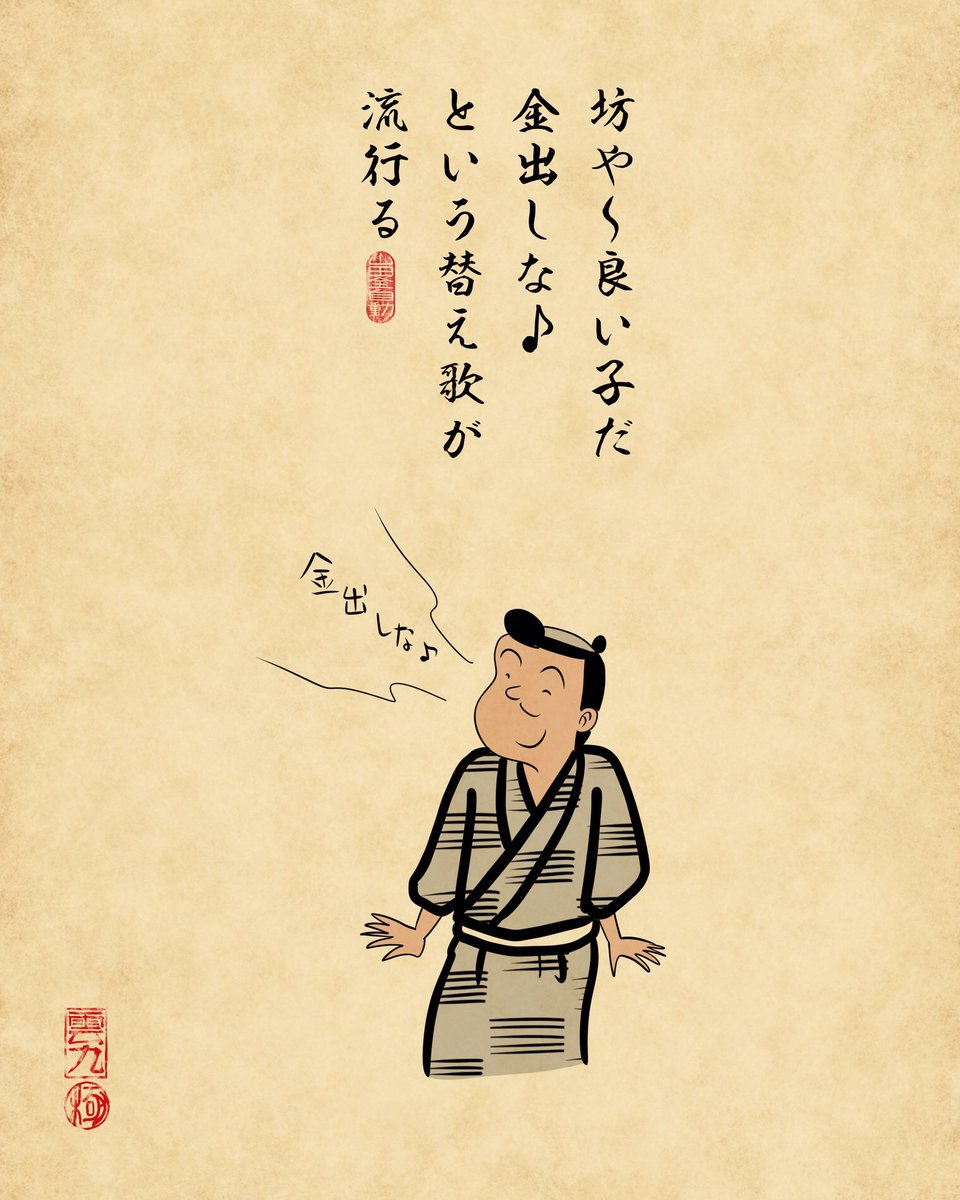 坊や〜良い子だ
金出しな♪
という替え歌が
流行る
金出しな♪
雲九
極